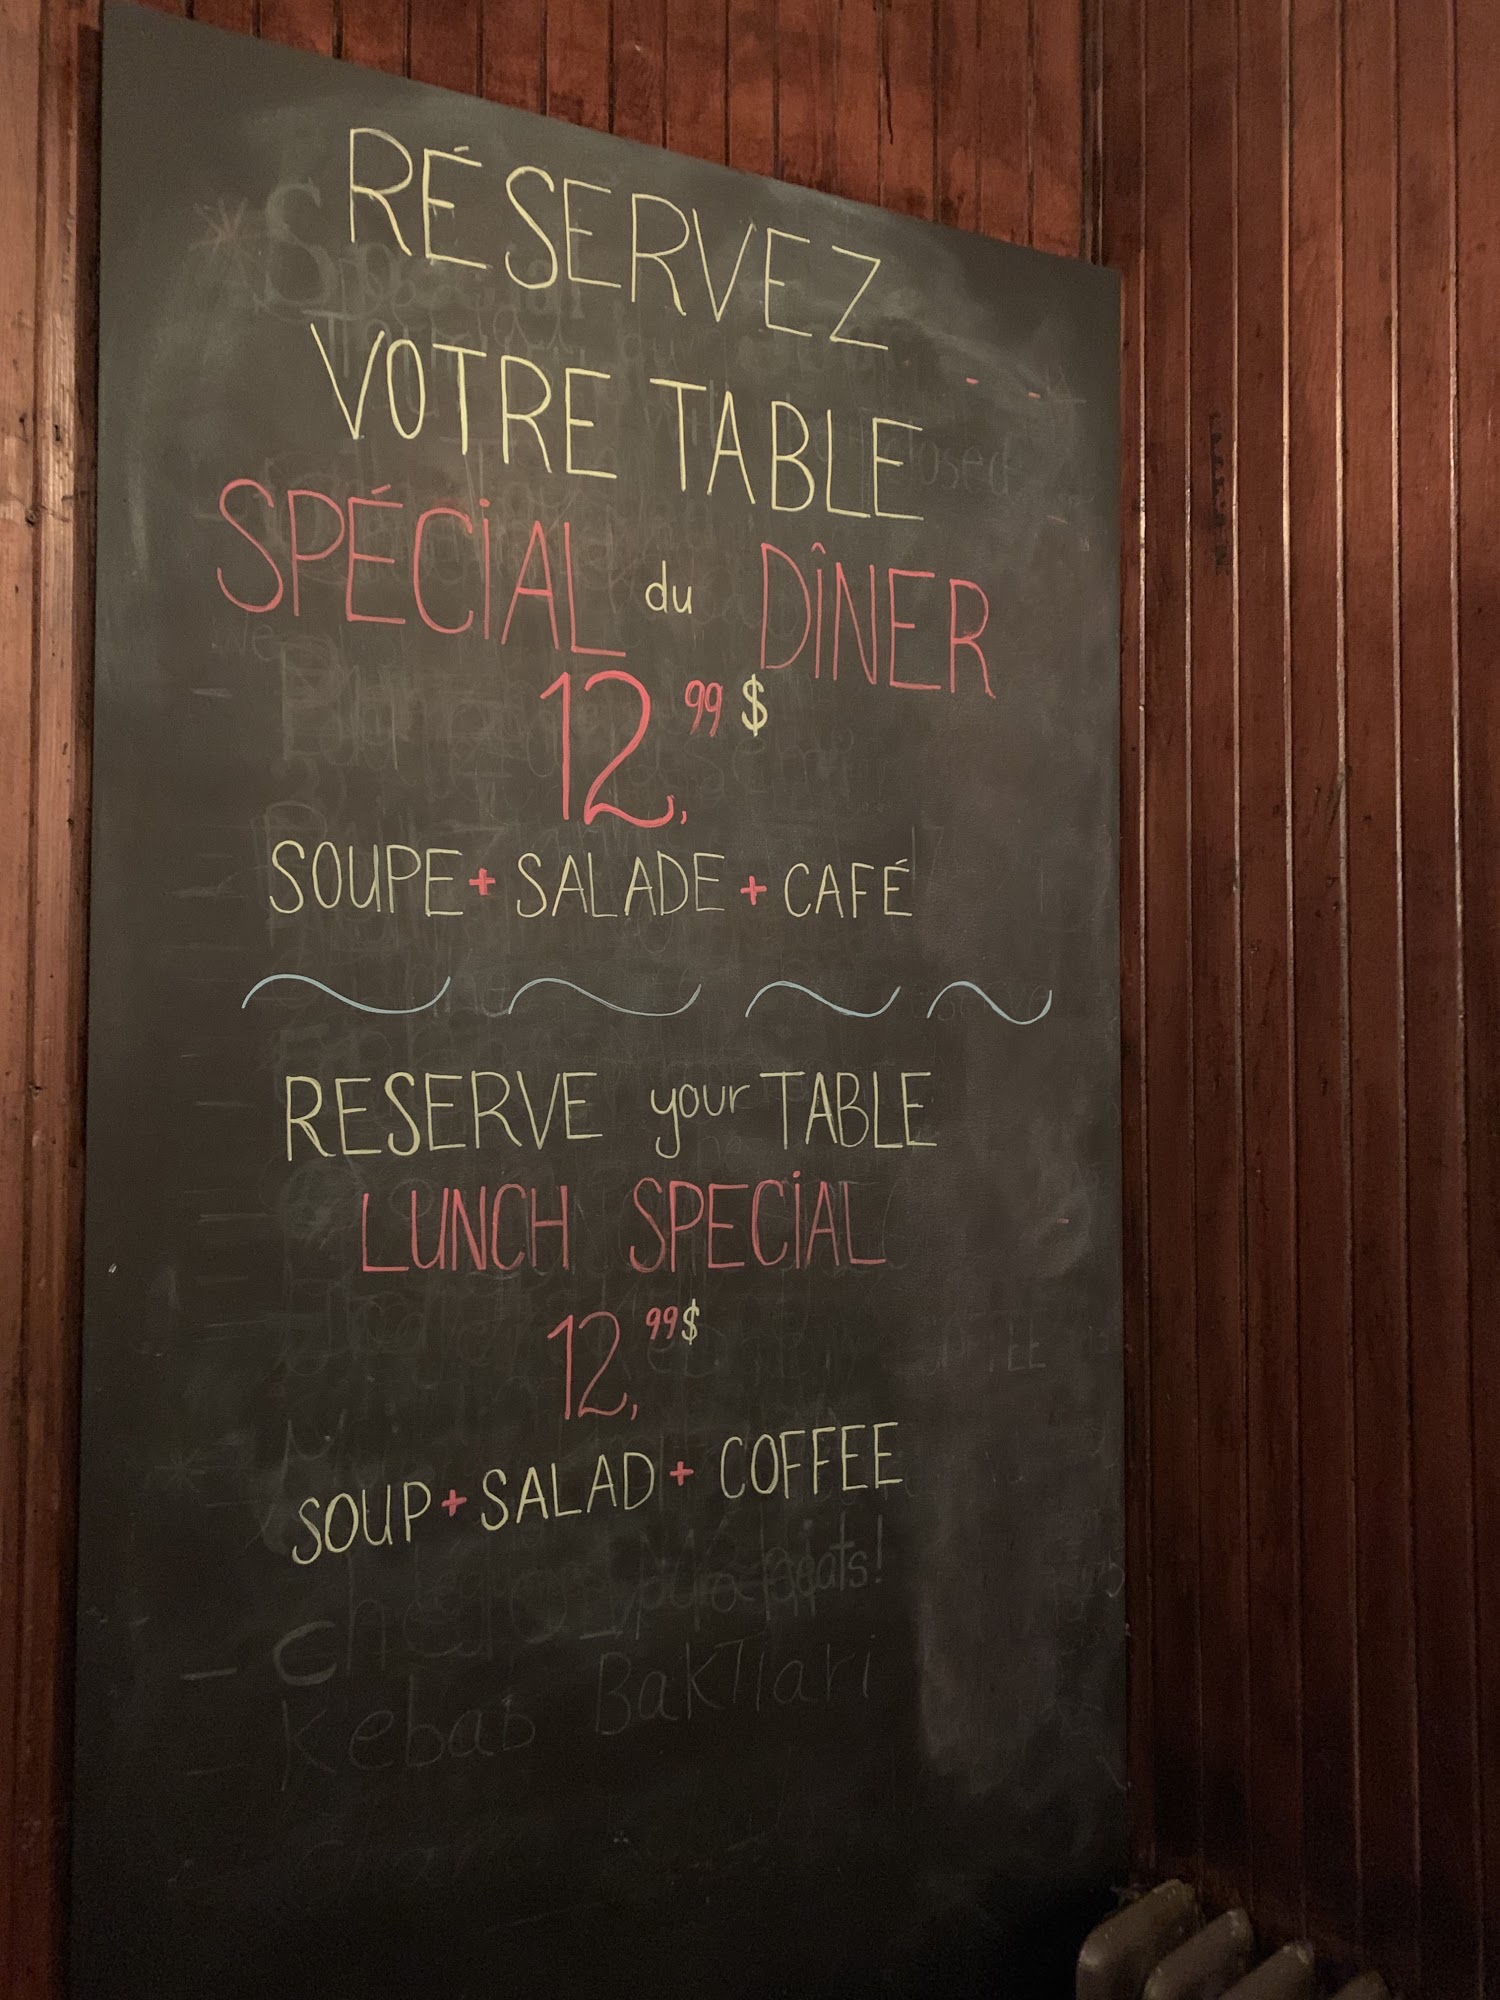 RÉSERVEZ
VOTRE TABLE
SPÉCIAL du DÎNER
12,99$
SOUPE + SALADE + CAFÉ
RESERVE your TABLE
LUNCH SPECIAL
12,99$
SOUP + SALAD + COFFEE
Kebab